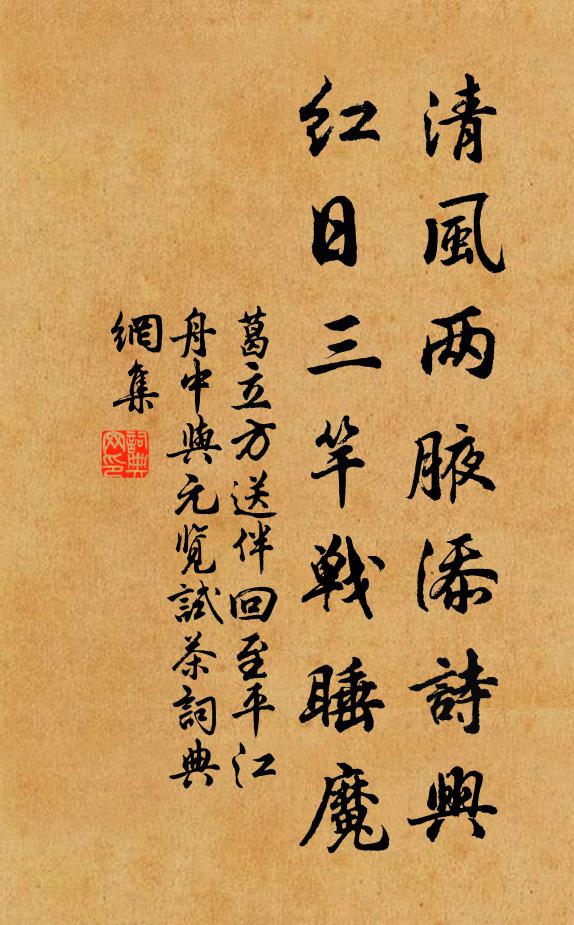 清風两腋添詩興
紅日三竿戦睡魔
葛立方送伴回至平江
舟中與元览試茶詞典
網集
詞典
网印